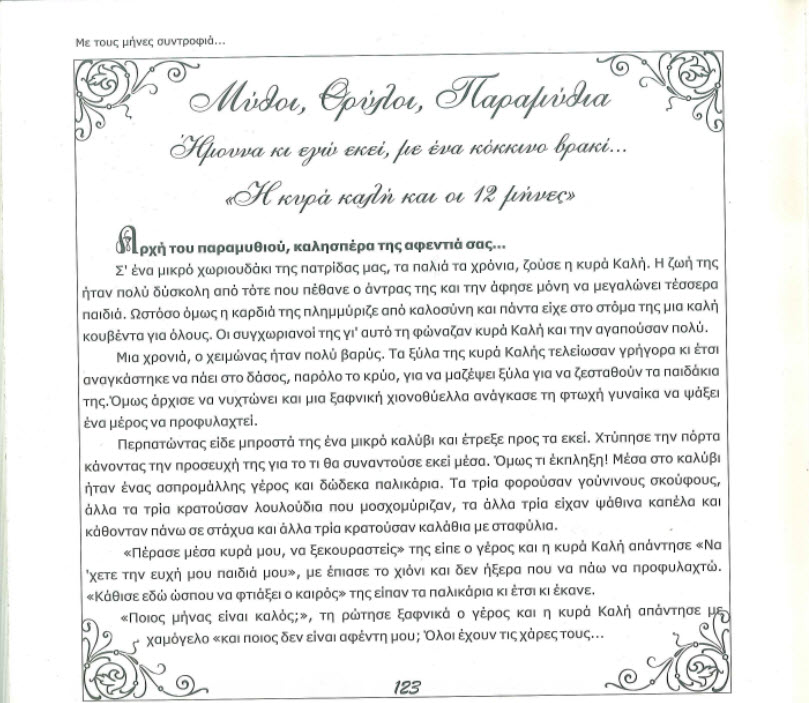 Με τους μήνες συντροφιά...
Μύθοι, Θρύλοι, Παραμύθια
Ήμουνα κι εγώ εκεί, με ένα κόκκινο βρακί...
«Η κυρά καλή και οι 12 μήνες»
Αρχή του παραμυθιού, καλησπέρα της αφεντιά σας...
Σ' ένα μικρό χωριουδάκι της πατρίδας μας, τα παλιά τα χρόνια, ζούσε η κυρά Καλή. Η ζωή της
ήταν πολύ δύσκολη από τότε που πέθανε ο άντρας της και την άφησε μόνη να μεγαλώνει τέσσερα
παιδιά. Ωστόσο όμως η καρδιά της πλημμύριζε από καλοσύνη και πάντα είχε στο στόμα της μια καλή
κουβέντα για όλους. Οι συγχωριανοί της γι' αυτό τη φώναζαν κυρά Καλή και την αγαπούσαν πολύ.
Μια χρονιά, ο χειμώνας ήταν πολύ βαρύς. Τα ξύλα της κυρά Καλής τελείωσαν γρήγορα κι έτσι
αναγκάστηκε να πάει στο δάσος, παρόλο το κρύο, για να μαζέψει ξύλα για να ζεσταθούν τα παιδάκια
της.Όμως άρχισε να νυχτώνει και μια ξαφνική χιονοθύελλα ανάγκασε τη φτωχή γυναίκα να ψάξει
ένα μέρος να προφυλαχτεί.
Περπατώντας είδε μπροστά της ένα μικρό καλύβι και έτρεξε προς τα εκεί. Χτύπησε την πόρτα
κάνοντας την προσευχή της για το τι θα συναντούσε εκεί μέσα. Όμως τι έκπληξη! Μέσα στο καλύβι
ήταν ένας ασπρομάλλης γέρος και δώδεκα παλικάρια. Τα τρία φορούσαν γούνινους σκούφους,
άλλα τα τρία κρατούσαν λουλούδια που μοσχομύριζαν, τα άλλα τρία είχαν ψάθινα καπέλα και
κάθονταν πάνω σε στάχυα και άλλα τρία κρατούσαν καλάθια με σταφύλια.
«Πέρασε μέσα κυρά μου, να ξεκουραστείς» της είπε ο γέρος και η κυρά Καλή απάντησε «Να
'χετε την ευχή μου παιδιά μου», με έπιασε το χιόνι και δεν ήξερα που να πάω να προφυλαχτώ.
«Κάθισε εδώ ώσπου να φτιάξει ο καιρός» της είπαν τα παλικάρια κι έτσι κι έκανε.
«Ποιος μήνας είναι καλός;», τη ρώτησε ξαφνικά ο γέρος και η κυρά Καλή απάντησε με
χαμόγελο «και ποιος δεν είναι αφέντη μου; Όλοι έχουν τις χάρες τους...
123